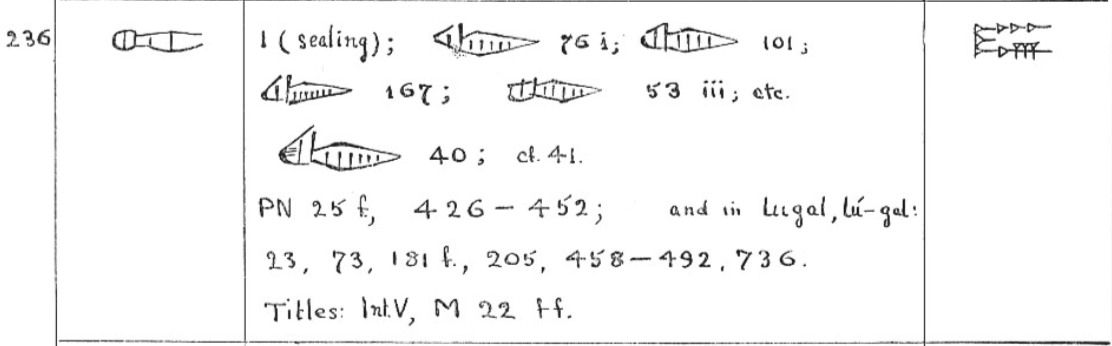 236 1 (sealing); 76 i; 101;
167; 53 iii; etc.
40; cf. 41.
PN 25 f., 426-452; and in Lugal, lú-gal:
23, 73, 181 f., 205, 458-492, 736.
Titles: Int. V, M 22 ff.